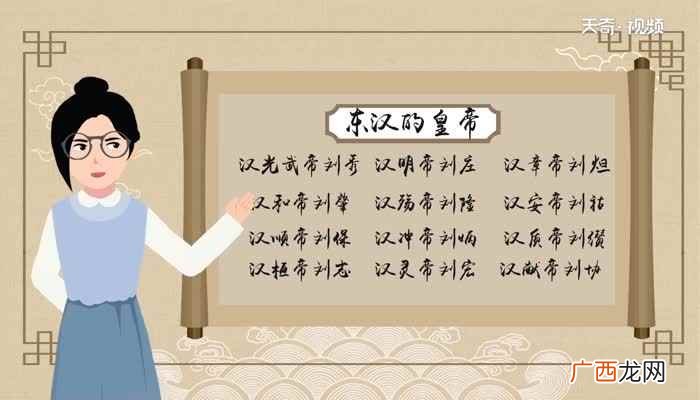 天奇·视频
东汉的皇帝
汉光武帝刘秀 汉明帝刘庄 汉章帝刘炟
汉和帝刘肇 汉殇帝刘隆 汉安帝刘祜
汉顺帝刘保 汉冲帝刘炳 汉质帝刘缵
汉桓帝刘志 汉灵帝刘宏 汉献帝刘协
广西龙网